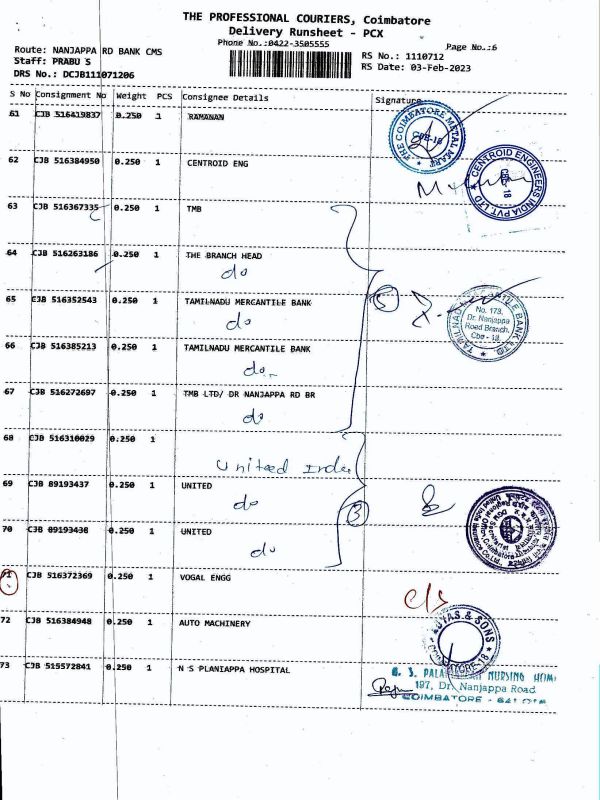 THE PROFESSIONAL COURIERS, Coimbatore
Delivery Runsheet - PCX
Phone No.:0422-3505555
Page No.:6
Route: NANJAPPA RD BANK CMS
Staff: PRABU S
DRS No.: DCJB111071206
RS No.: 1110712
RS Date: 03-Feb-2023
S No Consignment No Weight PCS Consignee Details Signature
61 CJB 516419837 0.250 1 RAMANAN
THE COIMBATORE METAL MART
62 CJB 516384950 0.250 1 CENTROID ENG
CENTROID ENGINEERS INDIA PVT. LTD
63 CJB 516367335 0.250 1 TMB
64 CJB 516263186 0.250 1 THE BRANCH HEAD
do
65 CJB 516352543 0.250 1 TAMILNADU MERCANTILE BANK
do
5
TAMILNAD MERCANTILE BANK LTD.
No. 173,
Dr. Nanjappa
Road Branch,
Cbe - 18.
66 CJB 516385213 0.250 1 TAMILNADU MERCANTILE BANK
do
67 CJB 516272697 0.250 1 TMB LTD/ DR NANJAPPA RD BR
do
68 CJB 516310029 0.250 1
United India
69 CJB 89193437 0.250 1 UNITED
do
3
70 CJB 89193438 0.250 1 UNITED
do
71 CJB 516372369 0.250 1 VOGAL ENGG
c/s
72 CJB 516384948 0.250 1 AUTO MACHINERY
& SONS
COIMBATORE-18
73 CJB 515572841 0.250 1 N S PLANIAPPA HOSPITAL
NURSING HOME
197, Dr. Nanjappa Road
COIMBATORE - 641 018